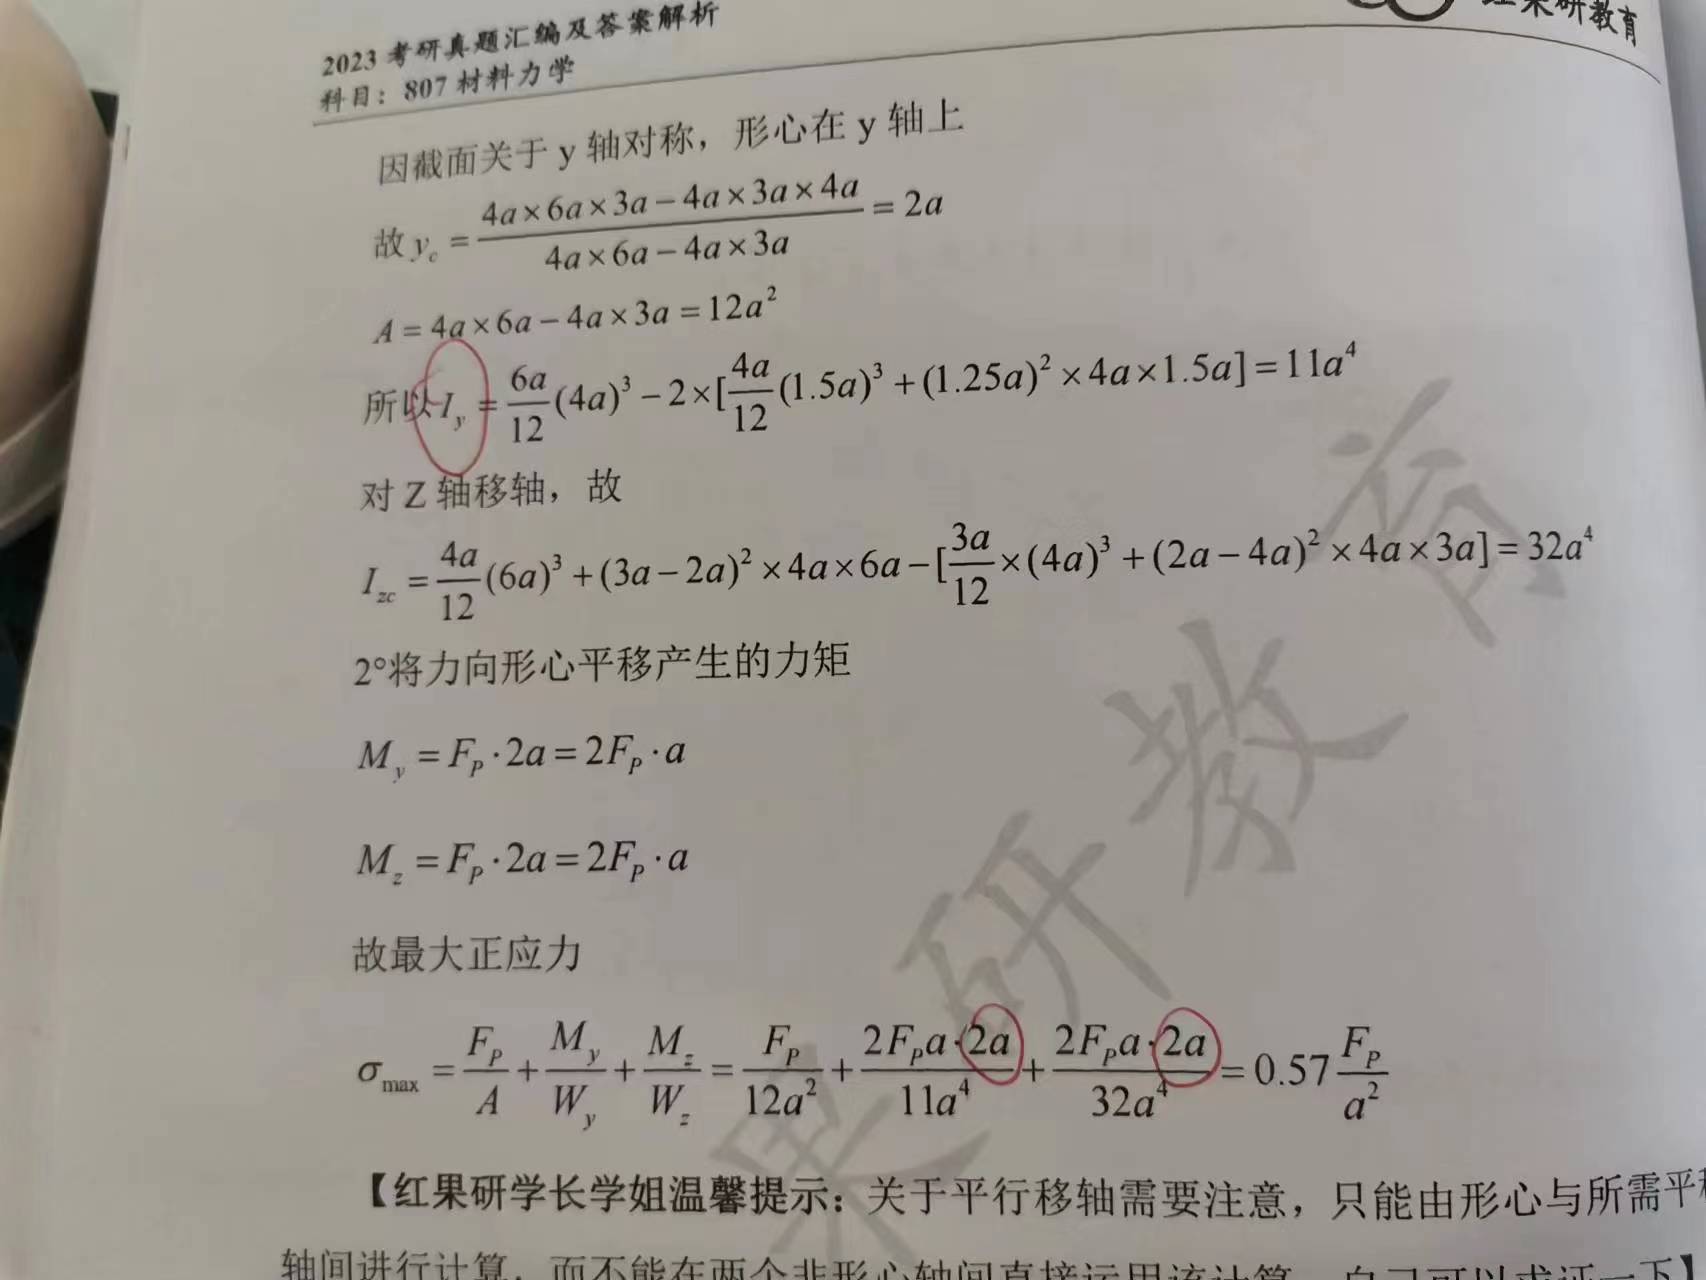 红果研教育
2023 考研真题汇编及答案解析
科目：807 材料力学
因截面关于 y 轴对称，形心在 y 轴上
故 y_c = \frac{4a×6a×3a－4a×3a×4a}{4a×6a－4a×3a} = 2a
A = 4a×6a－4a×3a = 12a^2
所以 I_y = \frac{6a}{12}(4a)^3－2×[\frac{4a}{12}(1.5a)^3+(1.25a)^2×4a×1.5a] = 11a^4
对 Z 轴移轴，故
I_{zc} = \frac{4a}{12}(6a)^3+(3a－2a)^2×4a×6a－[\frac{3a}{12}×(4a)^3+(2a－4a)^2×4a×3a] = 32a^4
2°将力向形心平移产生的力矩
M_y = F_P·2a = 2F_P·a
M_z = F_P·2a = 2F_P·a
故最大正应力
σ_{max} = \frac{F_P}{A}+\frac{M_y}{W_y}+\frac{M_z}{W_z} = \frac{F_P}{12a^2}+\frac{2F_Pa·2a}{11a^4}+\frac{2F_Pa·2a}{32a^4} = 0.57\frac{F_P}{a^2}
【红果研学长学姐温馨提示：关于平行移轴需要注意，只能由形心与所需平移
轴间进行计算，而不能在两个非形心轴间直接运用该计算，自己可以求证一下】
果研教育